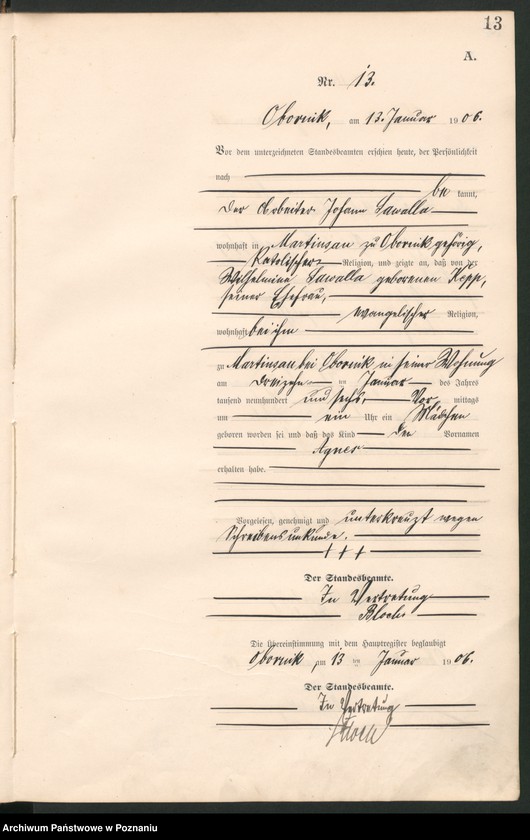 13
A.
Nr. 13.
Obornik, am 13. Januar 1906.
Vor dem unterzeichneten Standesbeamten erschien heute, der Persönlichkeit
nach
be kannt,
der Arbeiter Johann Sawalla
wohnhaft in Martinsau zu Obornik gehörig,
Katolischer Religion, und zeigte an, daß von der
Wilhelmine Sawalla geborenen Kopp,
seiner Ehefrau,
evangelischer Religion,
wohnhaft bei ihm
zu Martinsau bei Obornik in seiner Wohnung
am dreizehn ten Januar des Jahres
tausend neunhundert und sechs, Vor mittags
um ein Uhr ein Mädchen
geboren worden sei und daß das Kind den Vornamen
Agnes
erhalten habe.
Vorgelesen, genehmigt und unterkreuzt wegen
Schreibensunkunde.
+ + +
Der Standesbeamte.
In Vertretung
Bloch
Die Übereinstimmung mit dem Hauptregister beglaubigt
Obornik, am 13 ten Januar 1906.
Der Standesbeamte.
In Vertretung
Bloch
Archiwum Państwowe w Poznaniu